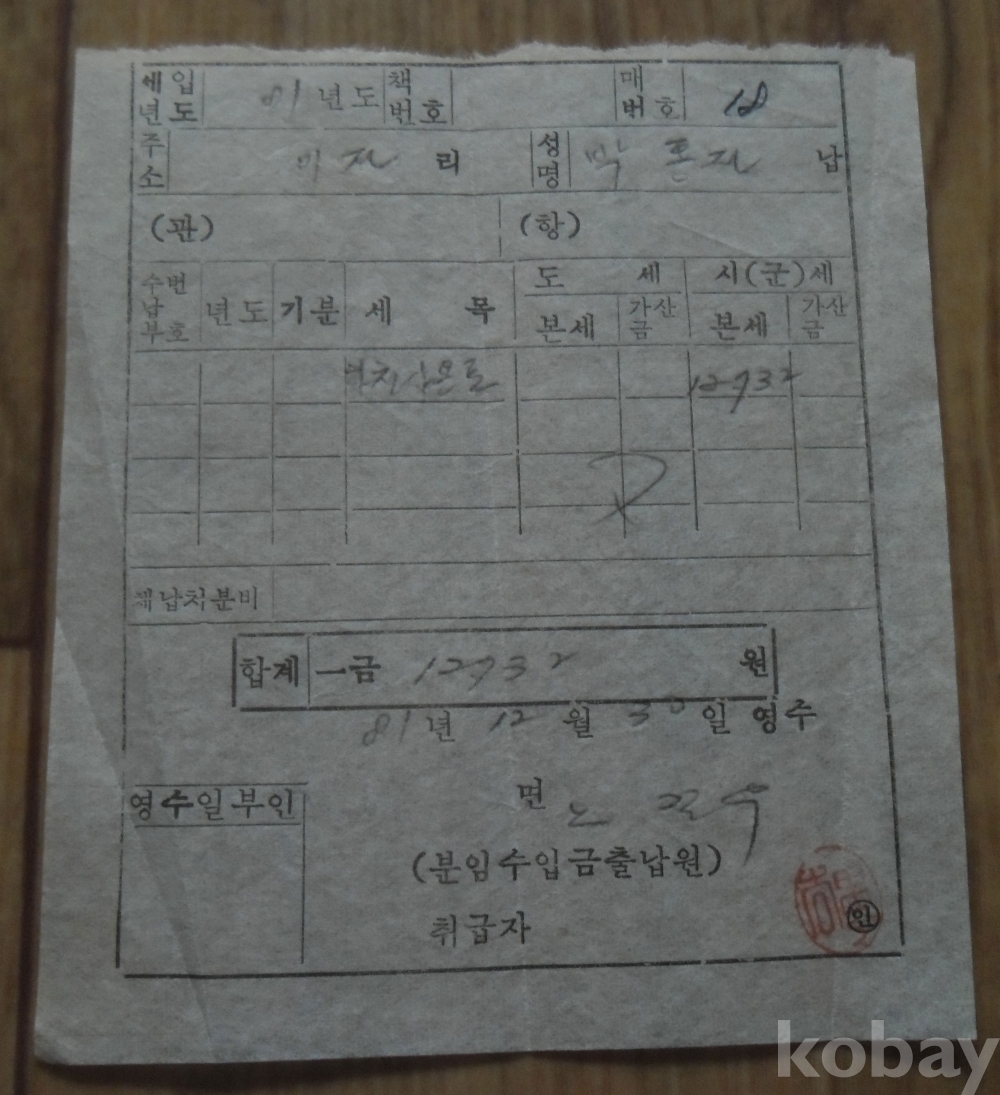 세입년도 81년도 책번호 매번호 18
주소 이자리 성명 박 자 납
(관) (항)
수납부번호 년도 기분 세목 도세 시(군)세
본세 가산금 본세 가산금
12732
체납처분비
합계 一금 12732 원
81년 12월 30일 영수
영수일부인 면 노 수
(분임수입금출납원)
취급자 인
kobay